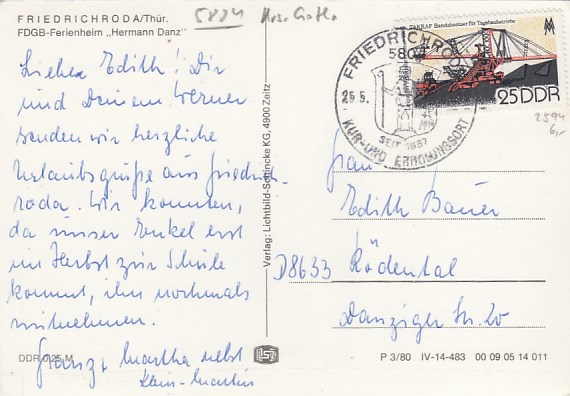 FRIEDRICHRODA/Thür.
FDGB-Ferienheim „Hermann Danz"
5804 Krs. Gotha
Liebe Edith! Dir
und Deinem Werner
senden wir herzliche
Urlaubsgrüße aus Friedrich-
roda. Wir konnten,
da unser Enkel erst
im Herbst zur Schule
kommt, ihn nochmals
mitnehmen.
Franz, Martha nebst
Klein-Martin
DDR 0,25 M
Verlag: Lichtbild-Schincke KG, 4900 Zeitz
FRIEDRICHRODA
5804
25.5.
SEIT 1837
KUR- UND ERHOLUNGSORT
TAKRAF Bandabsetzer für Tagebaubetriebe
25 DDR
2594
6,-
Frau
Edith Bauer
D8633 Rödental
Danziger Str. 20
P 3/80 IV-14-483 00 09 05 14 011